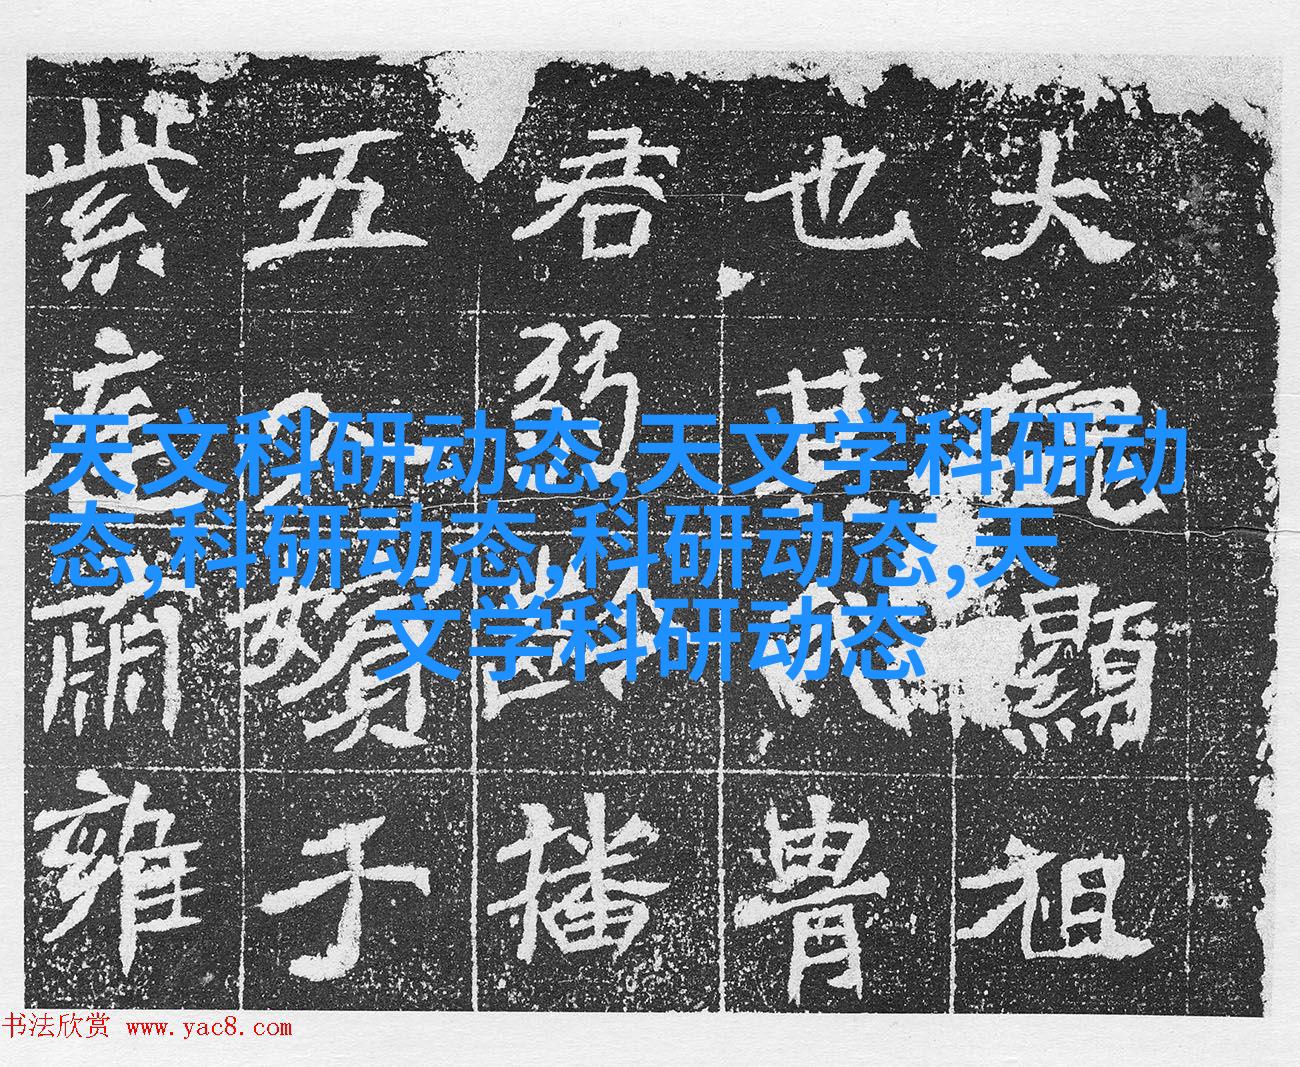 天文科研动态,天文学科研动
态,科研动态,科研动态,天
文学科研动态
大魏顯祖
也其冑
君弱齡播
五嬪于
紫庭肅雍
书法欣赏 www.yac8.com